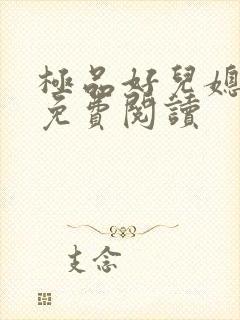 極品好兒媳
免費閱讀
支念